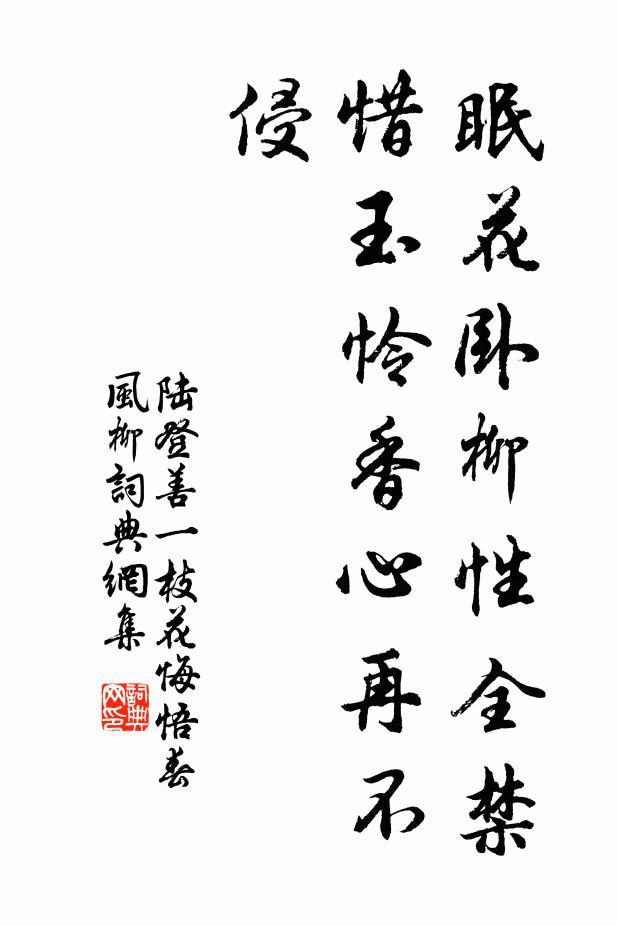 眠花卧柳性全禁
惜玉怜香心再不
侵
陆登善一枝花悔悟春
風柳詞典網集
詞典網印